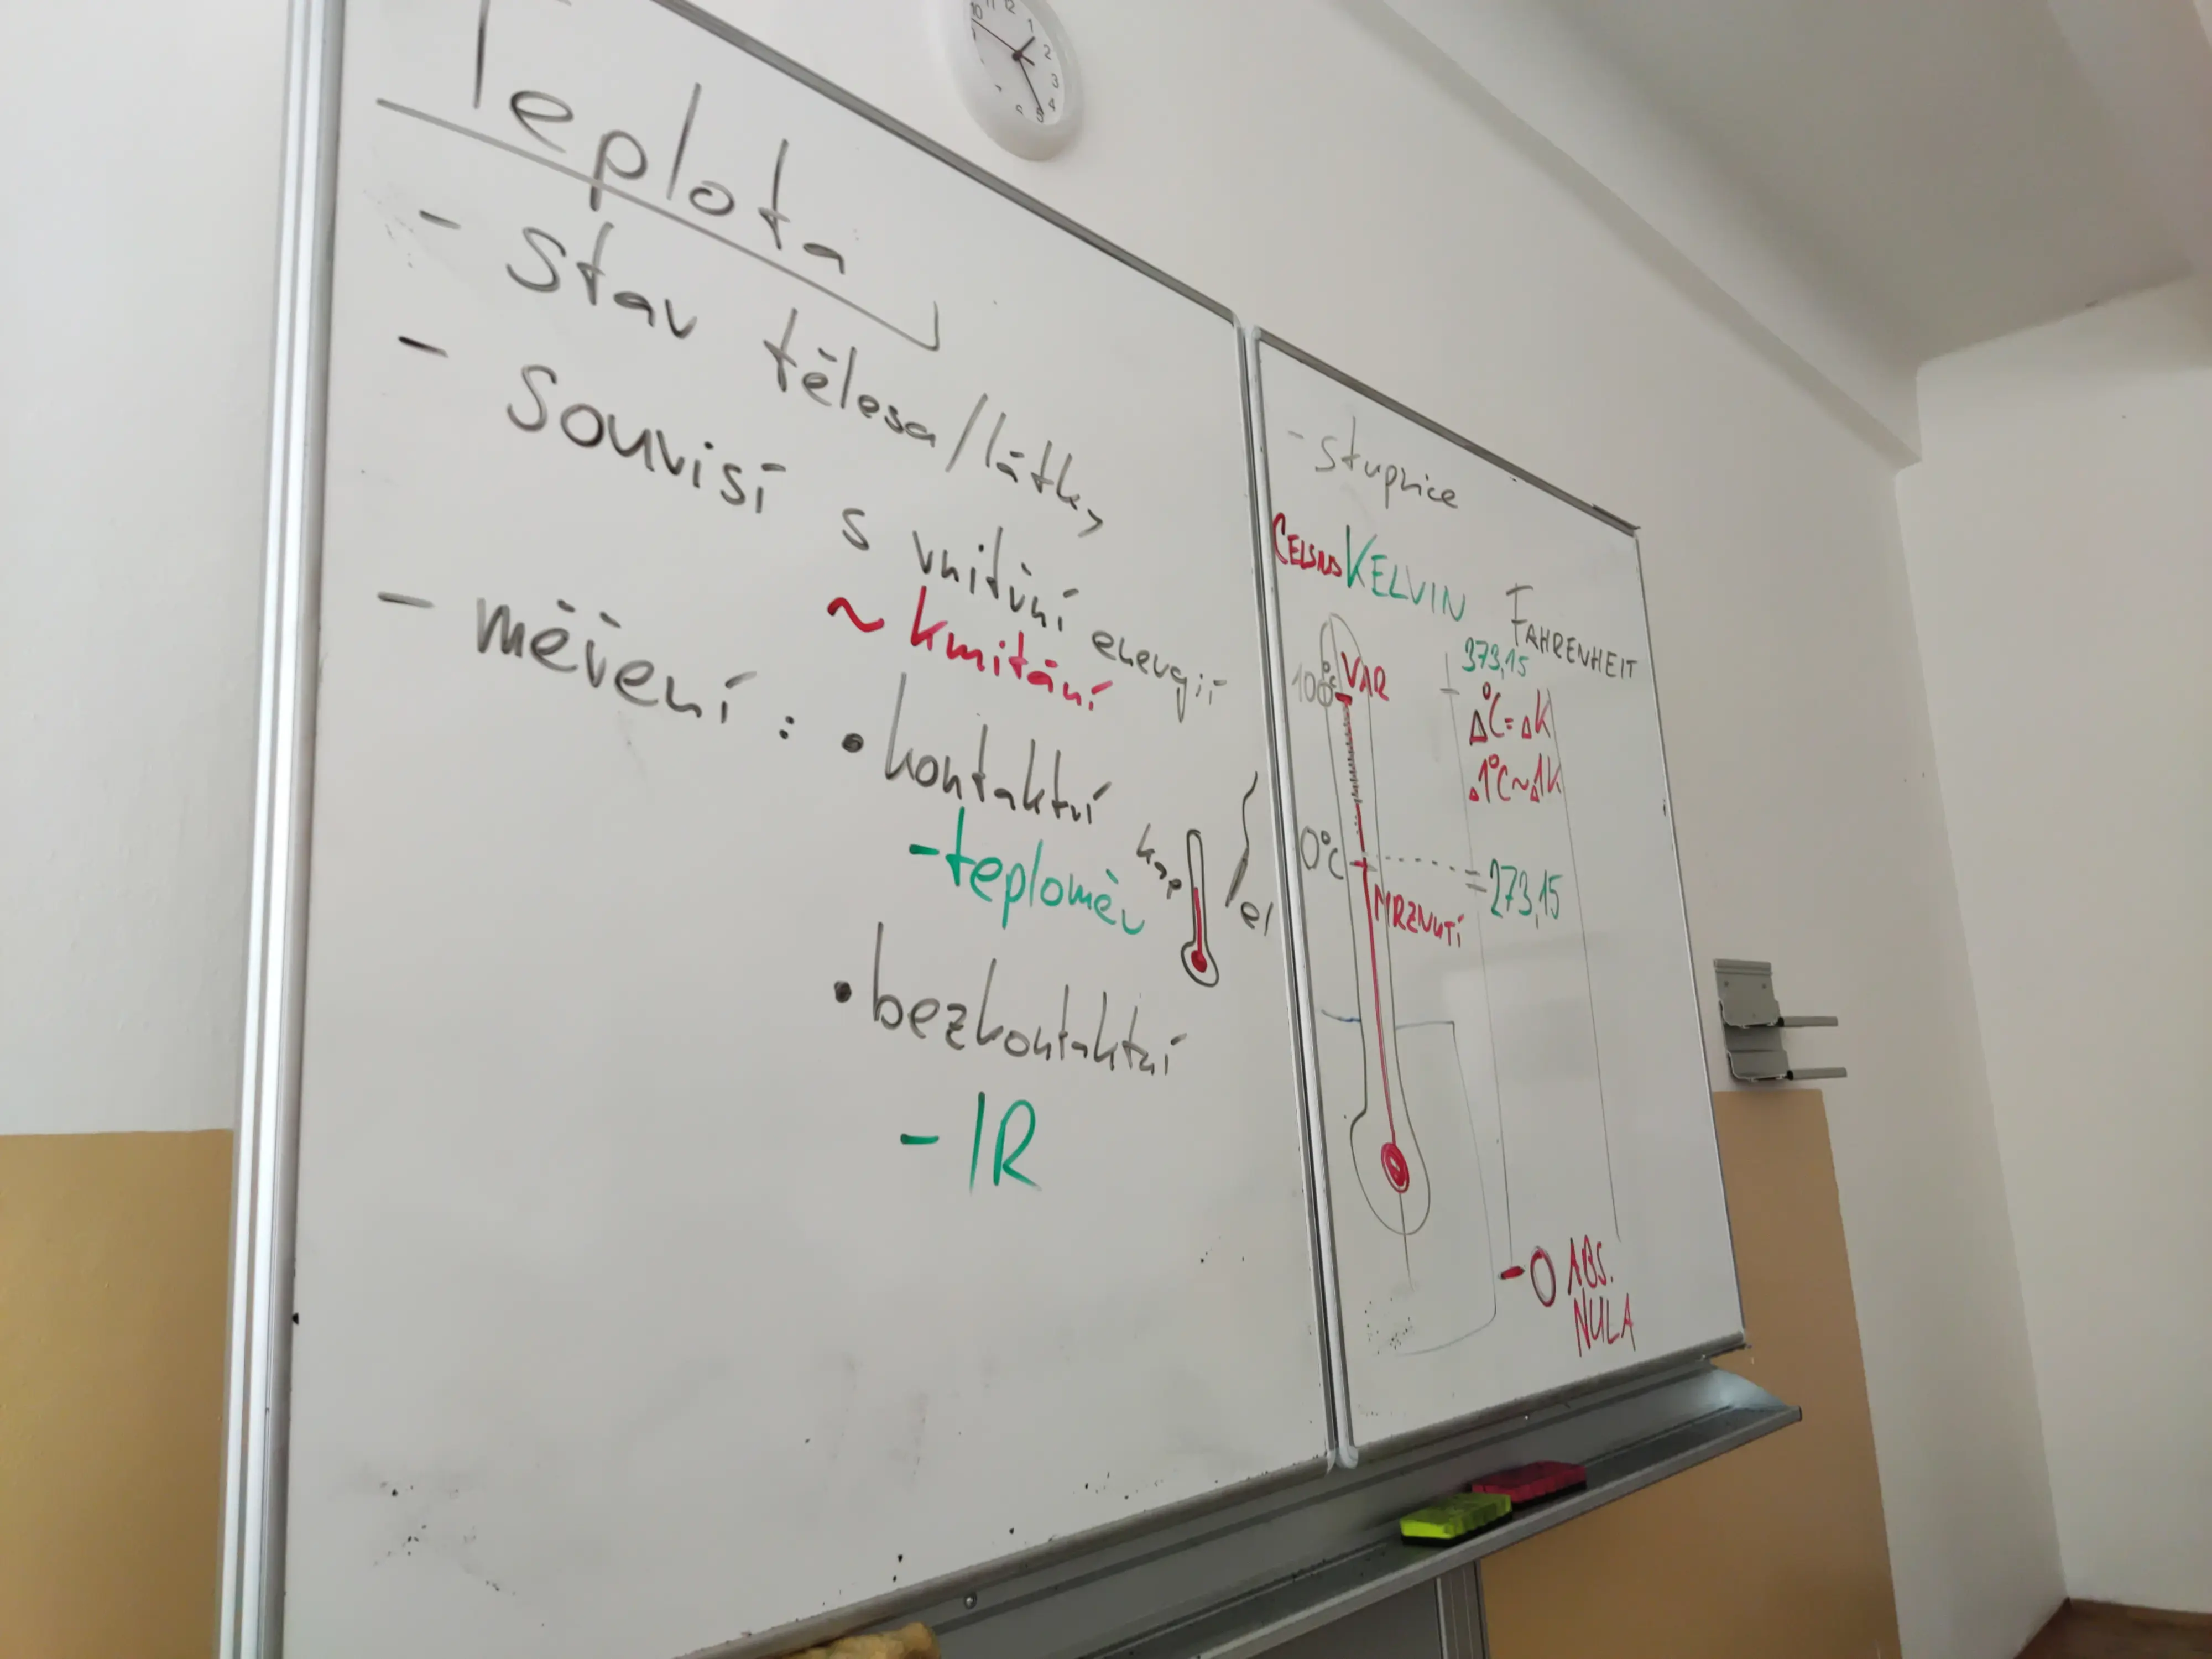 Teplota
- Stav tělesa/látky
- Souvisí s vnitřní energií
~ kmitání
- měření : • kontaktní
- teploměr
kap
el
• bezkontaktní
- IR
- stupnice
CELSIUS KELVIN FAHRENHEIT
100°C VAR 373,15
Δ°C = ΔK
Δ1°C ~ Δ1K
0°C = 273,15
MRZNUTÍ
- 0 ABS.
NULA
10 11 12 1 2 3 4 5